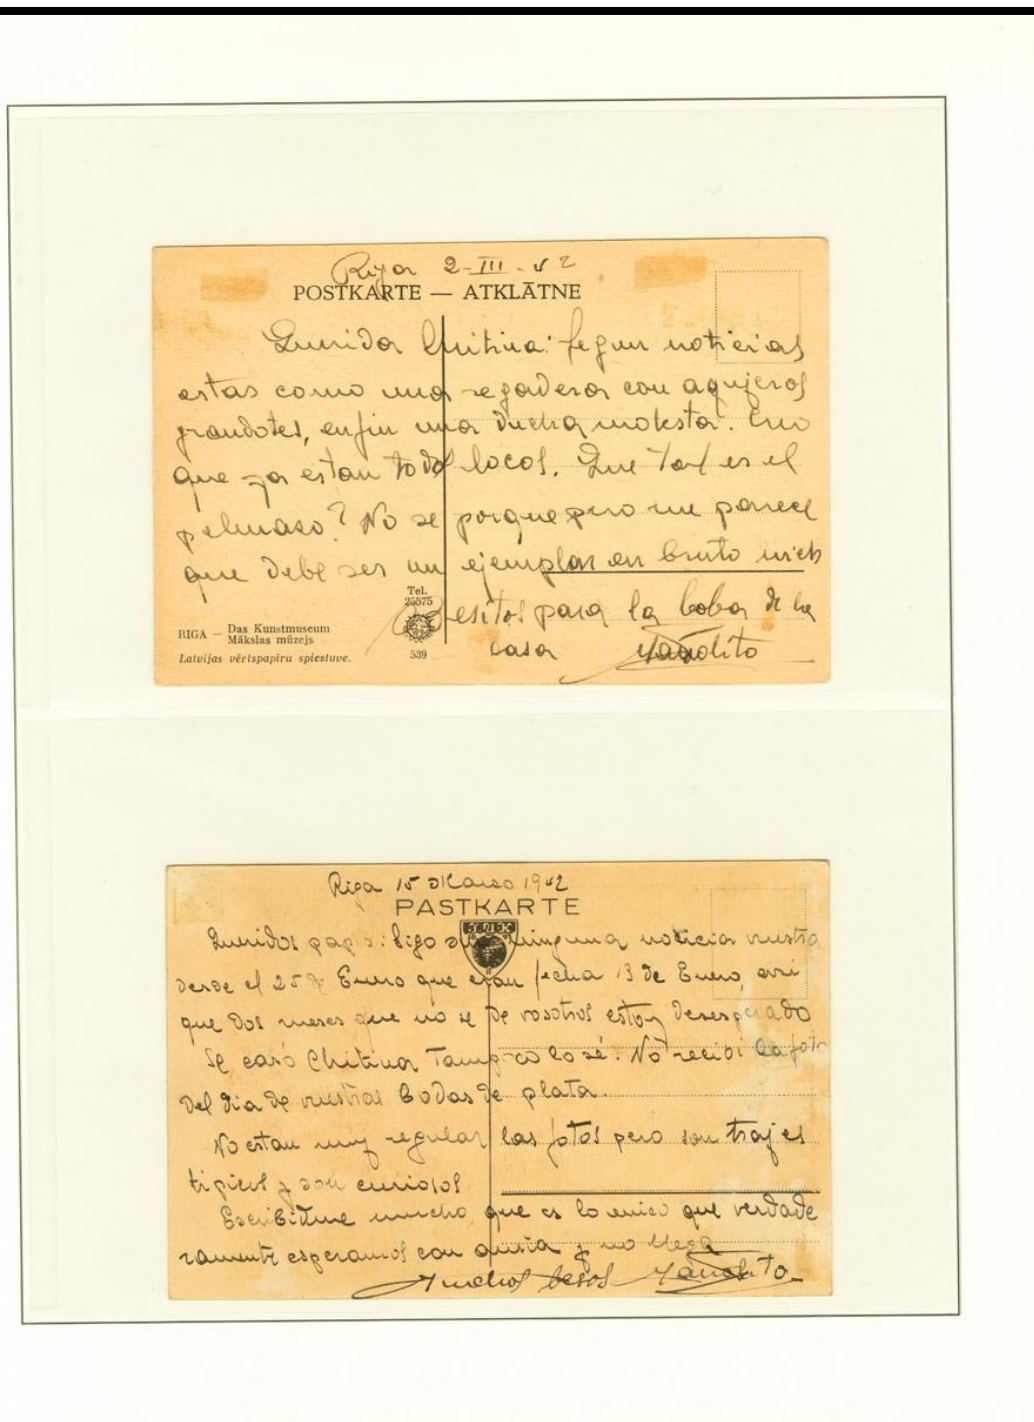 Riga 2-III-42
POSTKARTE — ATKLĀTNE
Querida Chitina: Segun noticias
estas como una regadera con agujeros
grandotes, en fin una ducha molesta. Creo
que ya estan todos locos. Que tal es el
pelmaso? No se porque pero me parece
que debe ser un ejemplar en bruto
Tel.
25575
Besitos para la boba de la
casa Manolito
RIGA — Das Kunstmuseum
Mākslas mūzejs
539
Latvijas vērtspapīru spiestuve.
Riga 15 Marzo 1942
PASTKARTE
Queridos papas: Sigo sin ninguna noticia vuestra
desde el 25 de Enero que eran fecha 13 de Enero, asi
que dos meses que no se de vosotros estoy desesperado
Se casó Chitina Tampoco lo sé. No recibi la foto
del dia de vuestras bodas de plata.
No estan muy regular las fotos pero son trajes
tipicos y son curiosos
Escribidme mucho que es lo unico que verdade
ramente esperamos con ansia y no llega
Muchos besos Manolito